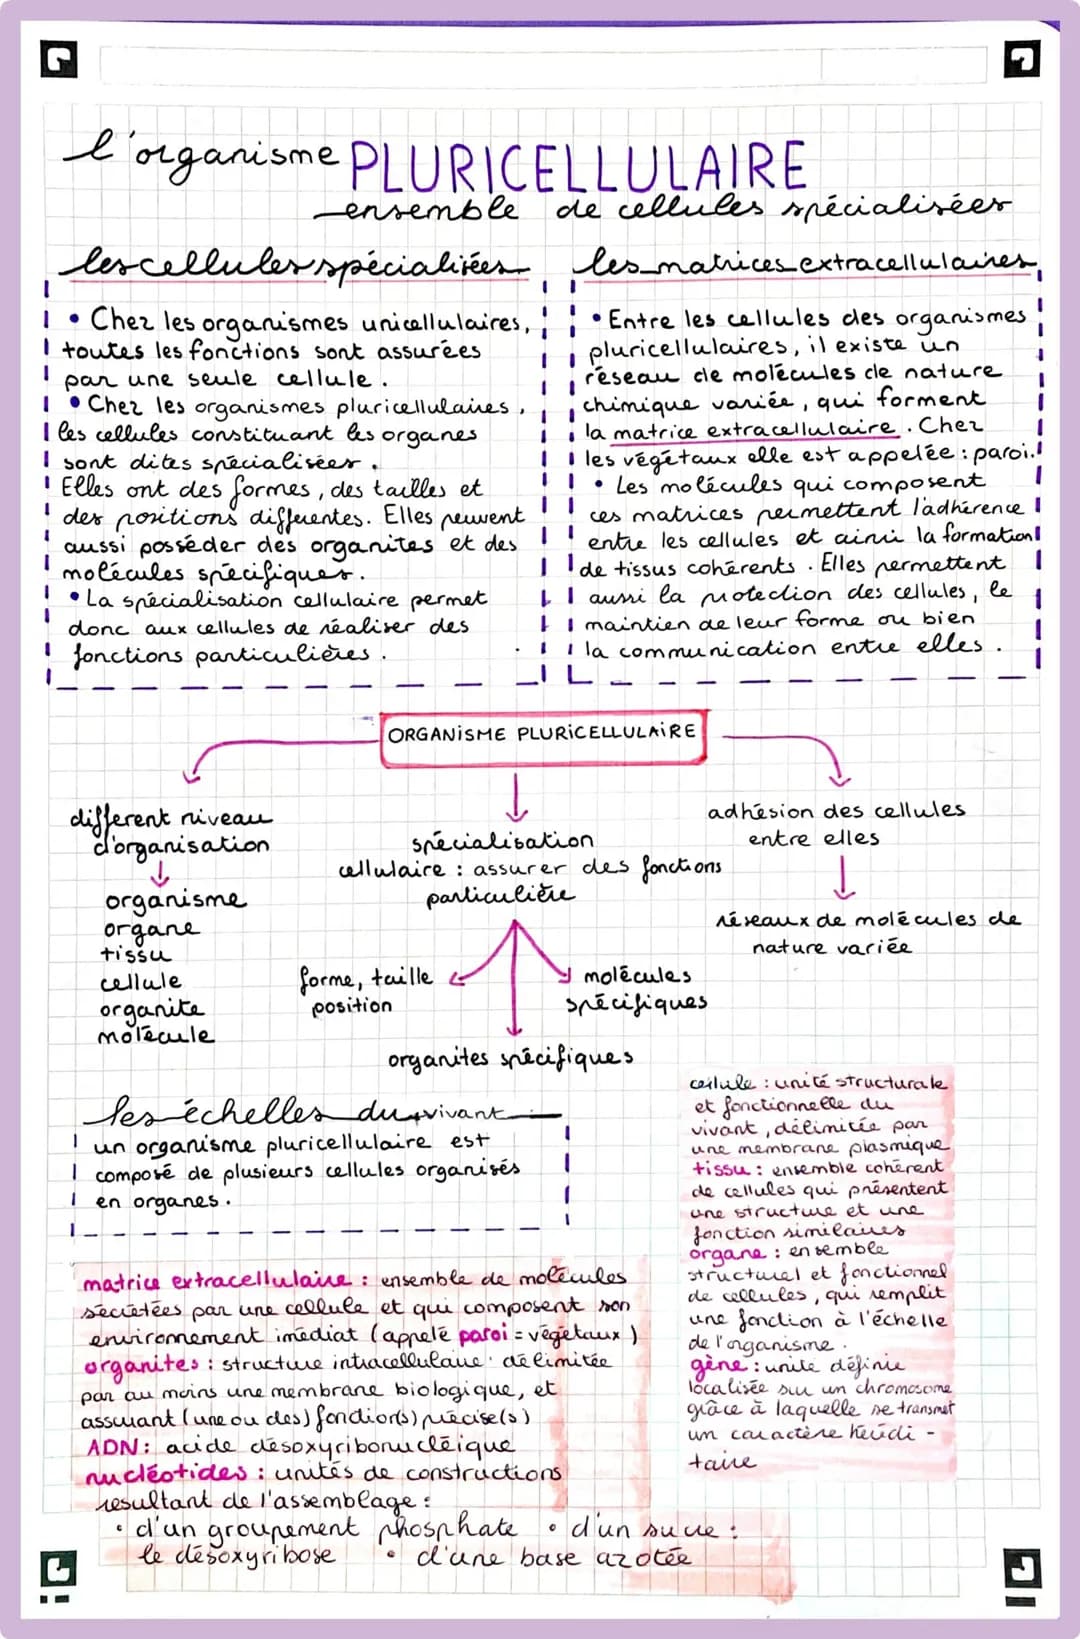 l'organisme PLURICELLULAIRE
ensemble de cellules spécialisées
les cellules spécialisées
• Chez les organismes unicellulaires,
toutes les fonctions sont assurées
par une seule cellule.
• Chez les organismes pluricellulaires,
les cellules constituant les organes
sont dites spécialisées.
Elles ont des formes, des tailles et
des positions différentes. Elles peuvent
aussi posséder des organites et des
molécules spécifiques.
• La spécialisation cellulaire permet
donc aux cellules de réaliser des
fonctions particulières.
les matrices extracellulaires
• Entre les cellules des organismes
pluricellulaires, il existe un
réseau de molécules de nature
chimique variée, qui forment
la matrice extracellulaire. Chez
les végétaux elle est appelée : paroi.
• Les molécules qui composent
ces matrices permettent l'adhérence
entre les cellules et ainsi la formation
de tissus cohérents. Elles permettent
aussi la protection des cellules, le
maintien de leur forme ou bien
la communication entre elles.
ORGANISME PLURICELLULAIRE
différent niveau
d'organisation
organisme
organe
tissu
cellule
organite
molécule
spécialisation
cellulaire : assurer des fonctions
particulière
forme, taille
position
organites spécifiques
molécules
spécifiques
adhésion des cellules
entre elles
réseaux de molécules de
nature variée
les échelles du vivant
un organisme pluricellulaire est
composé de plusieurs cellules organisés
en organes.
matrice extracellulaire : ensemble de molécules
sécrétées par une cellule et qui composent son
environnement imédiat (appelé paroi = végétaux)
organites : structure intracellulaire délimitée
par au moins une membrane biologique, et
assurant (une ou des) fonction(s) précise(s)
ADN : acide désoxyribonucléique
nucléotides : unités de constructions
resultant de l'assemblage :
• d'un groupement phosphate • d'un sucre :
le désoxyribose • d'une base azotée
cellule : unité structurale
et fonctionnelle du
vivant, délimitée par
une membrane plasmique
tissu : ensemble cohérent
de cellules qui présentent
une structure et une
fonction similaires
organe : ensemble
structurel et fonctionnel
de cellules, qui remplit
une fonction à l'échelle
de l'organisme.
gène : unité définie
localisée sur un chromosome
grâce à laquelle se transmet
un caractère hérédi-
taire